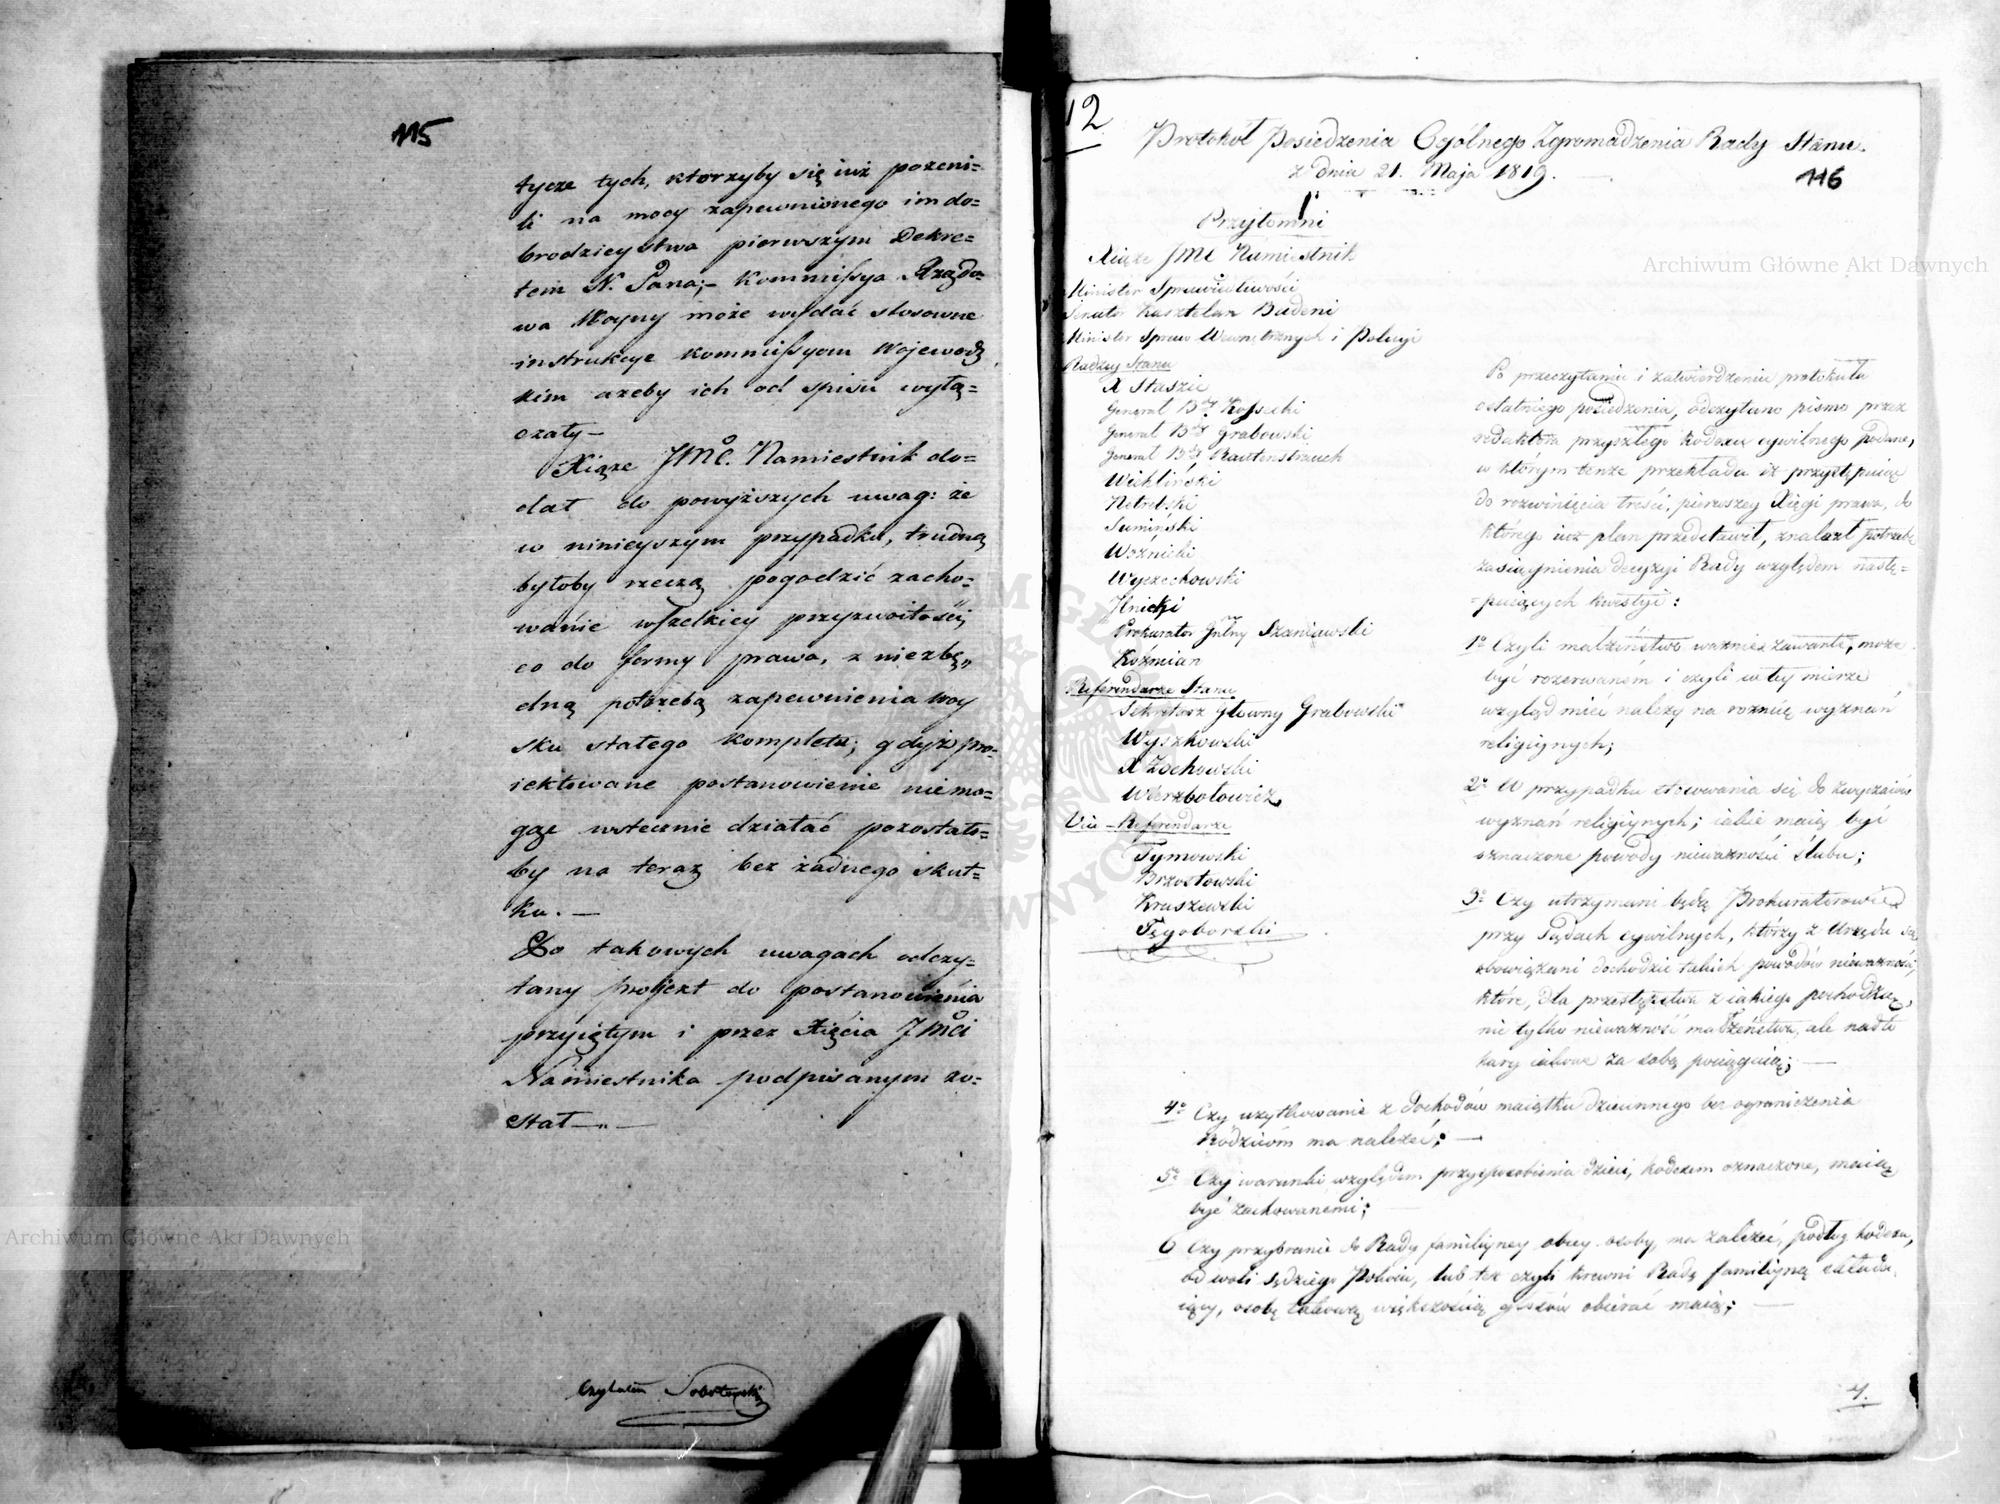 115
tycze tych, ktorzyby się iuż pożeni-
li na mocy zapewnionego im do-
brodzieystwa pierwszym Dekre-
tem N. Pana;- Kommissya Rządo-
wa Woyny może wydać stosowne
instrukcye Kommissyom Wojewodz
kim ażeby ich od spisu wyłą-
czały —
Xiąże JMC. Namiestnik do-
dał do powyższych uwag: że
w ninieyszym przypadku, trudną
byłoby rzeczą pogodzić zacho-
wanie wszelkiey przyzwoitości,
co do formy prawa, z niezbę-
dną potrzebą zapewnienia woy
sku stałego kompletu; gdyż pro-
iektowane postanowienie niemo-
gąc wstecznie działać pozostało-
by na teraz bez żadnego skut-
ku. —
Po takowych uwagach odczy-
tany projekt do postanowienia
przyiętym i przez Xięcia JMci
Namiestnika podpisanym zo-
stał —
Czytałem Sobolewski
12
Protokół Posiedzenia Ogólnego Zgromadzenia Rady Stanu.
z dnia 21. Maja 1819.
116
Przytomni
Xiąże JMC Namiestnik
Minister Sprawiedliwości
Senator Kasztelan Badeni
Minister Spraw Wewnętrznych i Policyi
Radzcy Stanu
X Staszic
Generał Bdy Kossecki
Generał Bdy Grabowski
Generał Bdy Rautenstrauch
Wichliński
Netrebski
Sumiński
Woźnicki
Wyczechowski
Hnicki
Prokurator Gnlny Szaniawski
Koźmian
Referendarze Stanu
Sekretarz Głowny Grabowski
Wyszkowski
X Żochowski
Wierzbołowicz
Vice-Referendarze
Tymowski
Brzostowski
Kruszewski
Tęgoborski
Po przeczytaniu i zatwierdzeniu protokułu
ostatniego posiedzenia, odczytano pismo przez
redaktora przyszłego Kodexu cywilnego podane,
w którym tenże przekłada iż przystępuiąc
do rozwinięcia treści, pierwszey Xięgi prawa, do
którego iuż plan przedstawił, znalazł potrzebę
zasiągnienia decyzyi Rady względem nastę-
-puiących kwestyi:
1o Czyli małżeństwo ważnie zawarte, może
być rozerwanem i czyli w tey mierze
wzgląd mieć należy na roznicę wyznań
religiynych;
2o W przypadku stosowania się do zwyczaiów
wyznań religiynych; iakie maią być
oznaczone powody nieważności ślubu;
3o Czy utrzymani będą Prokuratorowie
przy Sądach cywilnych, którzy z Urzędu są
obowiązani dochodzić takich powodów nieważności,
które, dla przestępstwa z iakiego pochodzą,
nie tylko nieważność małżeństwa, ale nadto
kary iakowe za sobą pociągaią; —
4o Czy użytkowanie z dochodów maiątku dziecinnego bez ograniczenia
Rodzicom ma należeć; —
5o Czy warunki względem przysposobienia dzieci, kodexem oznaczone, maią
być zachowanemi;
6 Czy przybranie do Rady familiyney obcey osoby, ma zależeć, podług kodexu,
od woli Sędziego Pokoiu, lub też czyli krewni Radę familiyną składa-
iący, osobę takową większością głosów obierać maią; —
7.
Archiwum Główne Akt Dawnych
Archiwum Główne Akt Dawnych